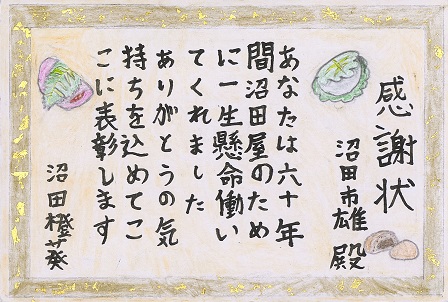 感謝状
沼田市雄殿
あなたは六十年
間沼田屋のため
に一生懸命働い
てくれました
ありがとうの気
持ちを込めてこ
こに表彰します
沼田橙葵